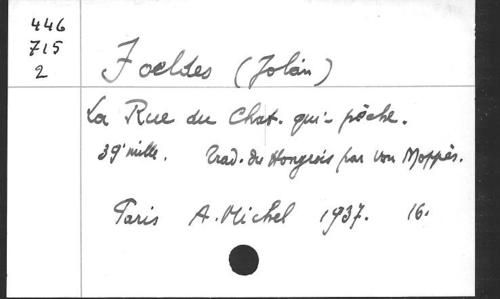 446
715
2
Foeldes (Jolán)
La Rue du Chat-qui-pêche.
39e mille. Trad. du Hongrois par von Moppès.
Paris A. Michel 1937. 16.